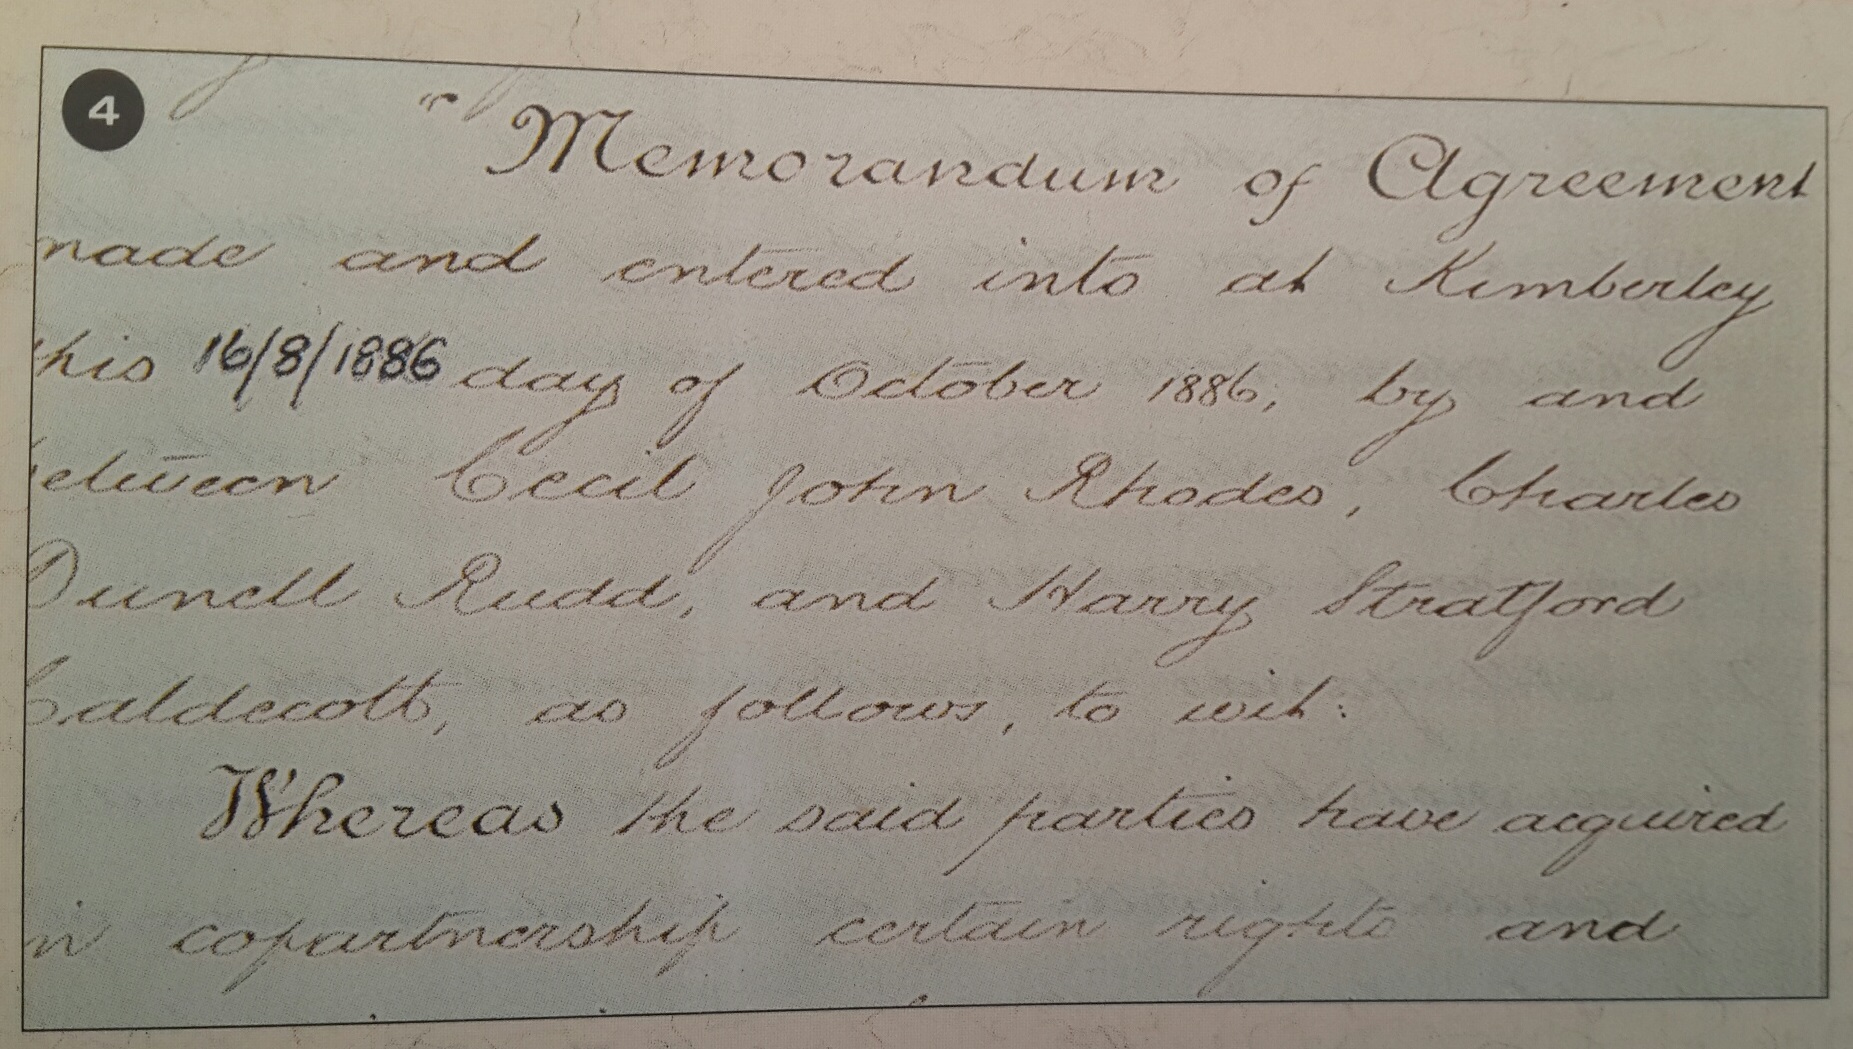 4
"Memorandum of Agreement
made and entered into at Kimberley
this 16/8/1886 day of October 1886, by and
between Cecil John Rhodes, Charles
Dunell Rudd, and Harry Stratford
Caldecott, as follows, to wit:
Whereas the said parties have acquired
in copartnership certain rights and